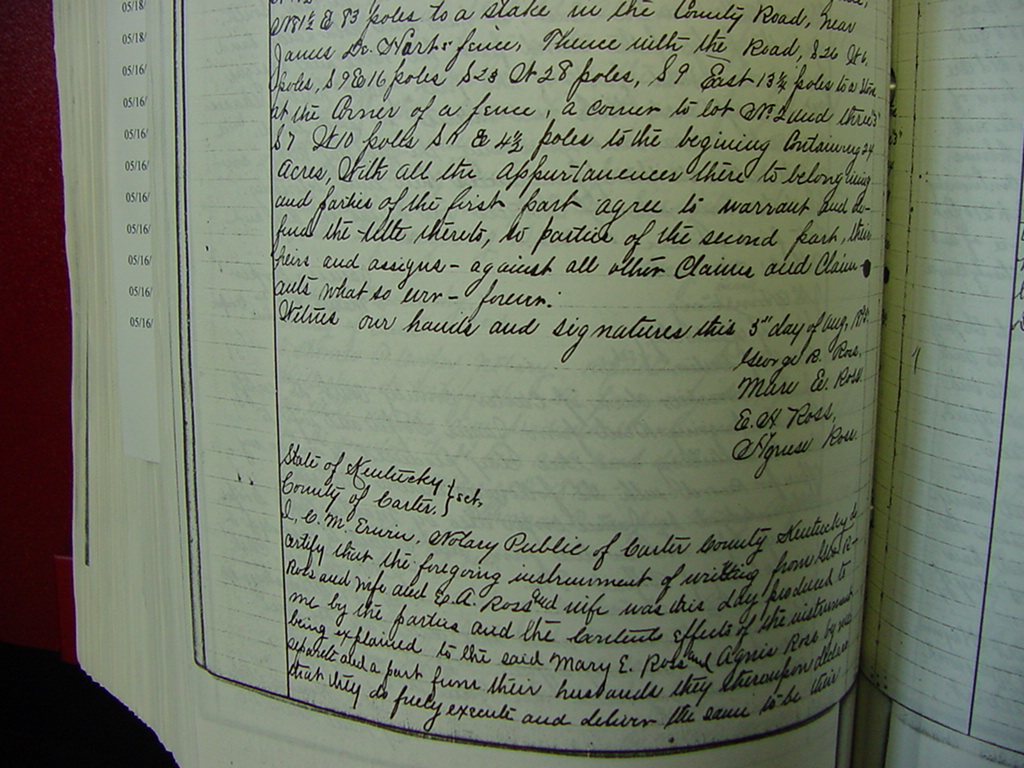 05/18/
05/18/
05/16/
05/16/
05/16/
05/16/
05/16/
05/16/
05/16/
05/16/
05/16/
E 83 poles to a stake in the County Road, near
James Hart's fence, Thence with the Road, S 26 W 6
poles, S 9 E 16 poles S 23 W 28 poles, S 9 East 13 ½ poles to a
at the Corner of a fence, a corner to lot No. 2 and
S 7 W 10 poles S 11 E 4 ½ poles to the begining Containing 24
Acres, With all the appurtanences there to belonging
and parties of the first part agree to warrant and de-
fend the title thereto, to parties of the second part, their
heirs and assigns - against all other Claims and Claim
ants what so ever - forever.
Witness our hands and signatures this 3" day of Aug,
George R. Ross.
Mary E. Ross.
E. A Ross,
Agnes Ross.
State of Kentucky } sct,
County of Carter, }
I, C. M. Erwin, Notary Public of Carter County Kentucky do
certify that the foregoing instrument of writing from Geo R-
Ross and wife and E. A. Ross and wife was this day produced to
me by the parties and the contents effects of the instrument
being explained to the said Mary E. Ross and Agnes Ross by me
seperate and a part from their husbands they thereupon declare
that they do freely execute and deliver the same to be their